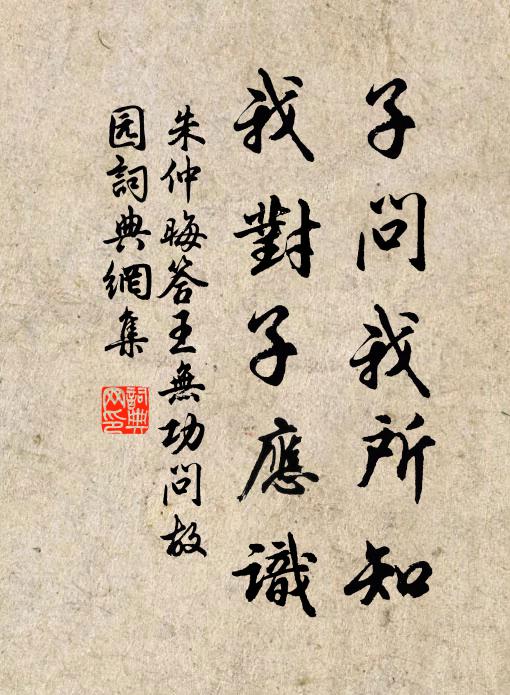 子問我所知
我對子應識
朱仲晦答王無功問故
园詞典網集
詞典
网印